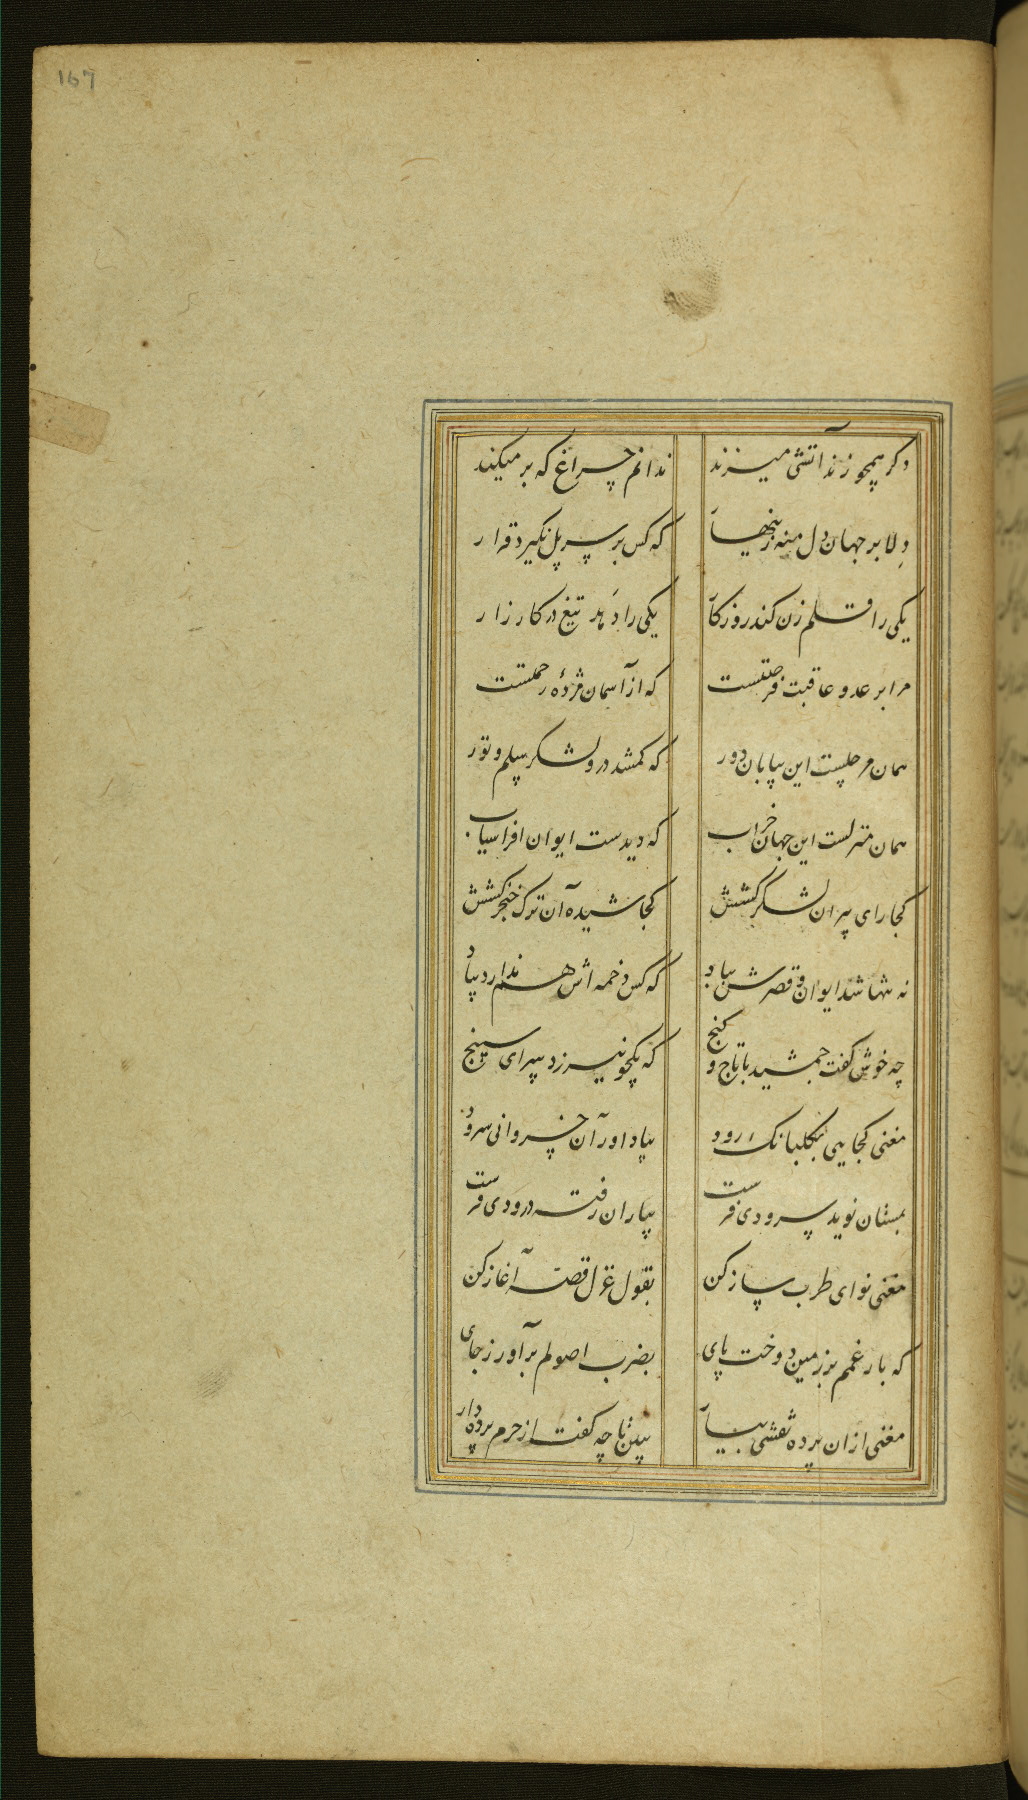 167
دگر همچو زند آتشی میزند ندانم چراغ که بر میکند
دلا بر جهان دل منه زینهار که کس بر سر پل نگیرد قرار
یکی را قلم زن کند روزگار یکی را دهد تیغ در کارزار
مرا بر عدو عاقبت فرصتست که از آسمان مژدهٔ رحمتست
همان مرحلیست این بیابان دور که گمشد درو لشکر سلم و تور
همان منزلست این جهان خراب که دیدست ایوان افراسیاب
کجا رای پیران لشکر کشش کجا شیده آن ترک خنجر کشش
نه تنها شد ایوان و قصرش بباد که کس دخمه اش هم ندارد بیاد
چه خوش گفت جمشید با تاج و گنج که یکجو نیرزد سرای سپنج
مغنی کجایی بگلبانک رود بیاد اور آن خسروانی سرود
بمستان نوید سرودی فرست بیاران رفته درودی فرست
مغنی نوای طرب ساز کن بقول غزل قصه آغاز کن
که بار غمم بر زمین دوخت پای بضرب اصولم برآور زجای
مغنی ازان پرده نقشی بیار ببین تا چه گفت از حرم پرده دار